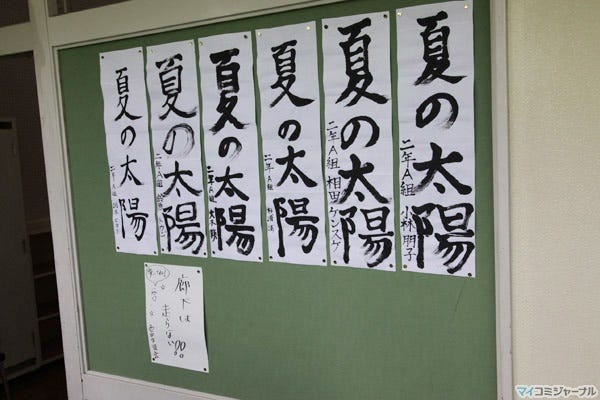 夏の太陽
二年A組 小林朋子
夏の太陽
二年A組 相田ケンスケ
夏の太陽
二年A組
夏の太陽
二年A組
夏の太陽
二年A組
夏の太陽
二年A組
廊下は
走らない!!
マイコミジャーナル